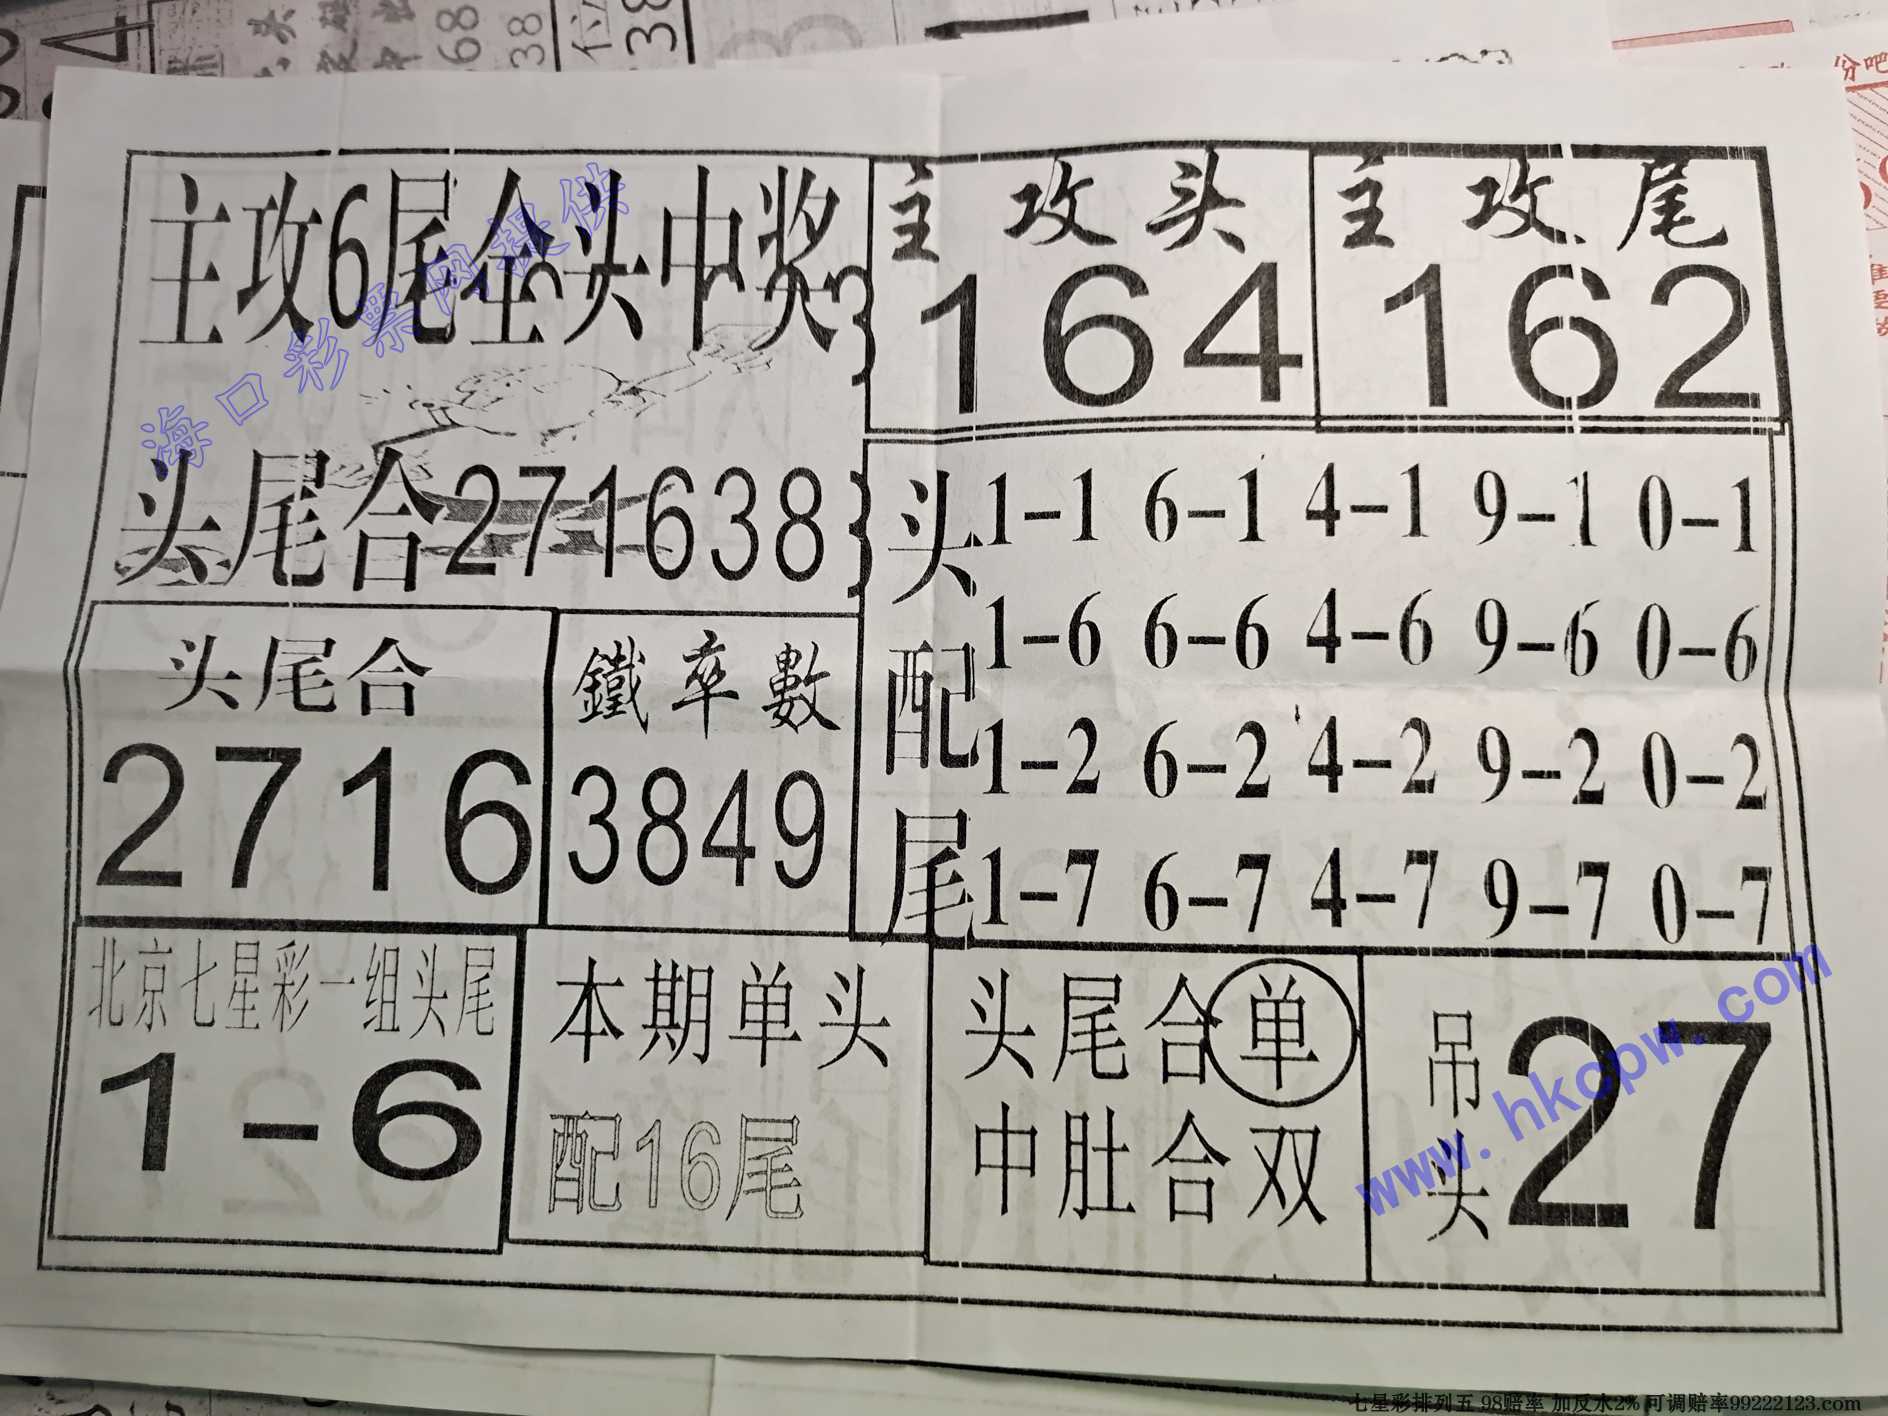 主攻6尾全头中奖
头尾合271638
主攻头
164
主攻尾
162
头配尾
1-1 6-1 4-1 9-1 0-1
1-6 6-6 4-6 9-6 0-6
1-2 6-2 4-2 9-2 0-2
1-7 6-7 4-7 9-7 0-7
头尾合
2716
鐵率數
3849
北京七星彩一组头尾
1-6
本期单头
配16尾
头尾合单
中肚合双
吊头27
海口彩票网提供
www.hkcpw.com
七星彩排列五 98赔率 加反水2% 可调赔率99222123.com
份吧
68
38
38